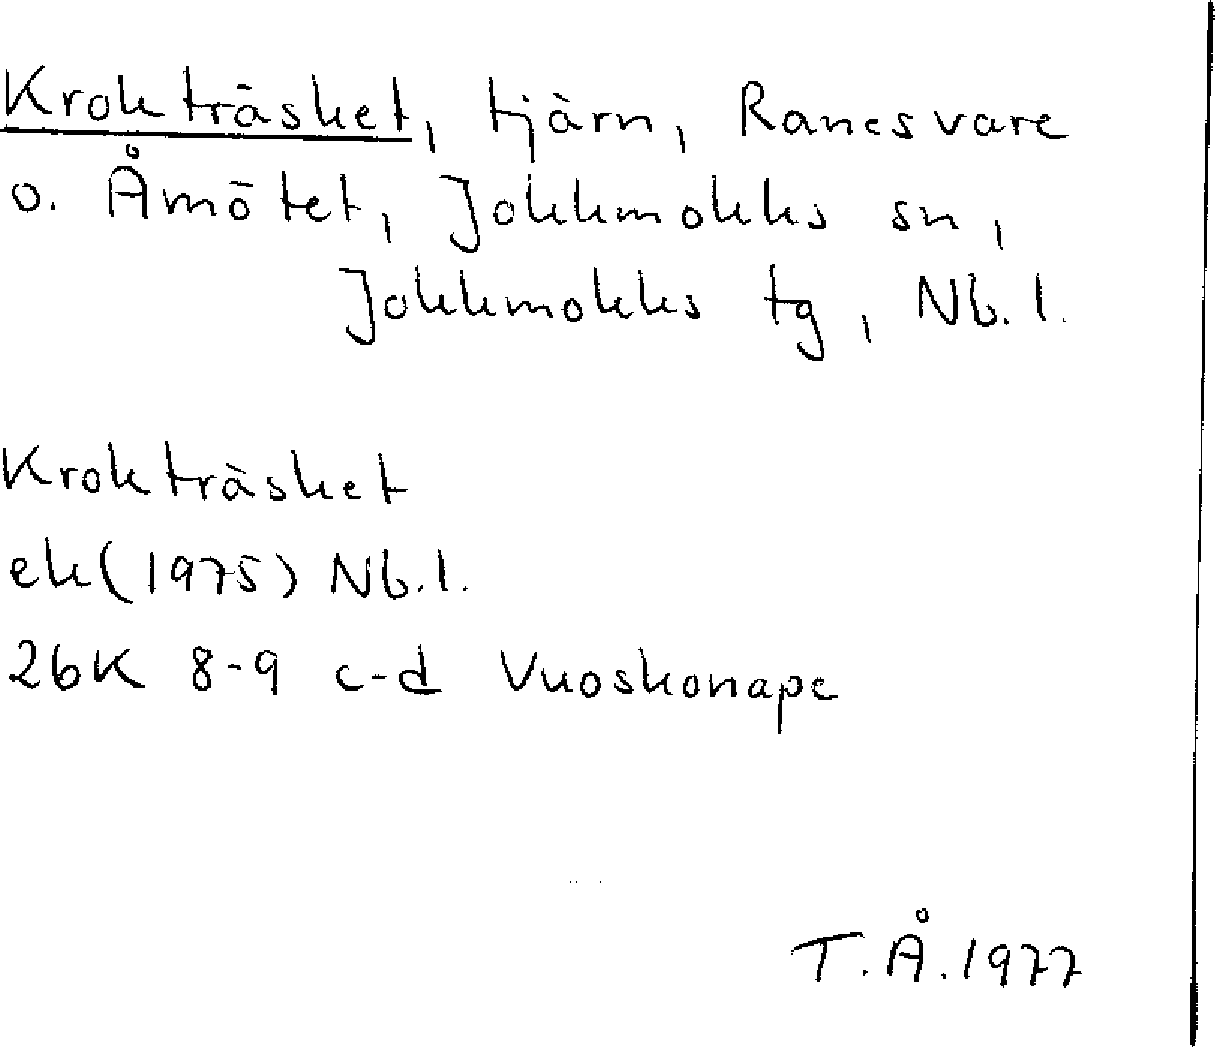 Krokträsket, tjärn, Ranesvare
o. Åmötet, Jokkmokks sn,
Jokkmokks tg, Nb. l.
Krokträsket
ek (1975) Nb. l.
26K 8-9 c-d Vuoskonape
T. Å. 1977